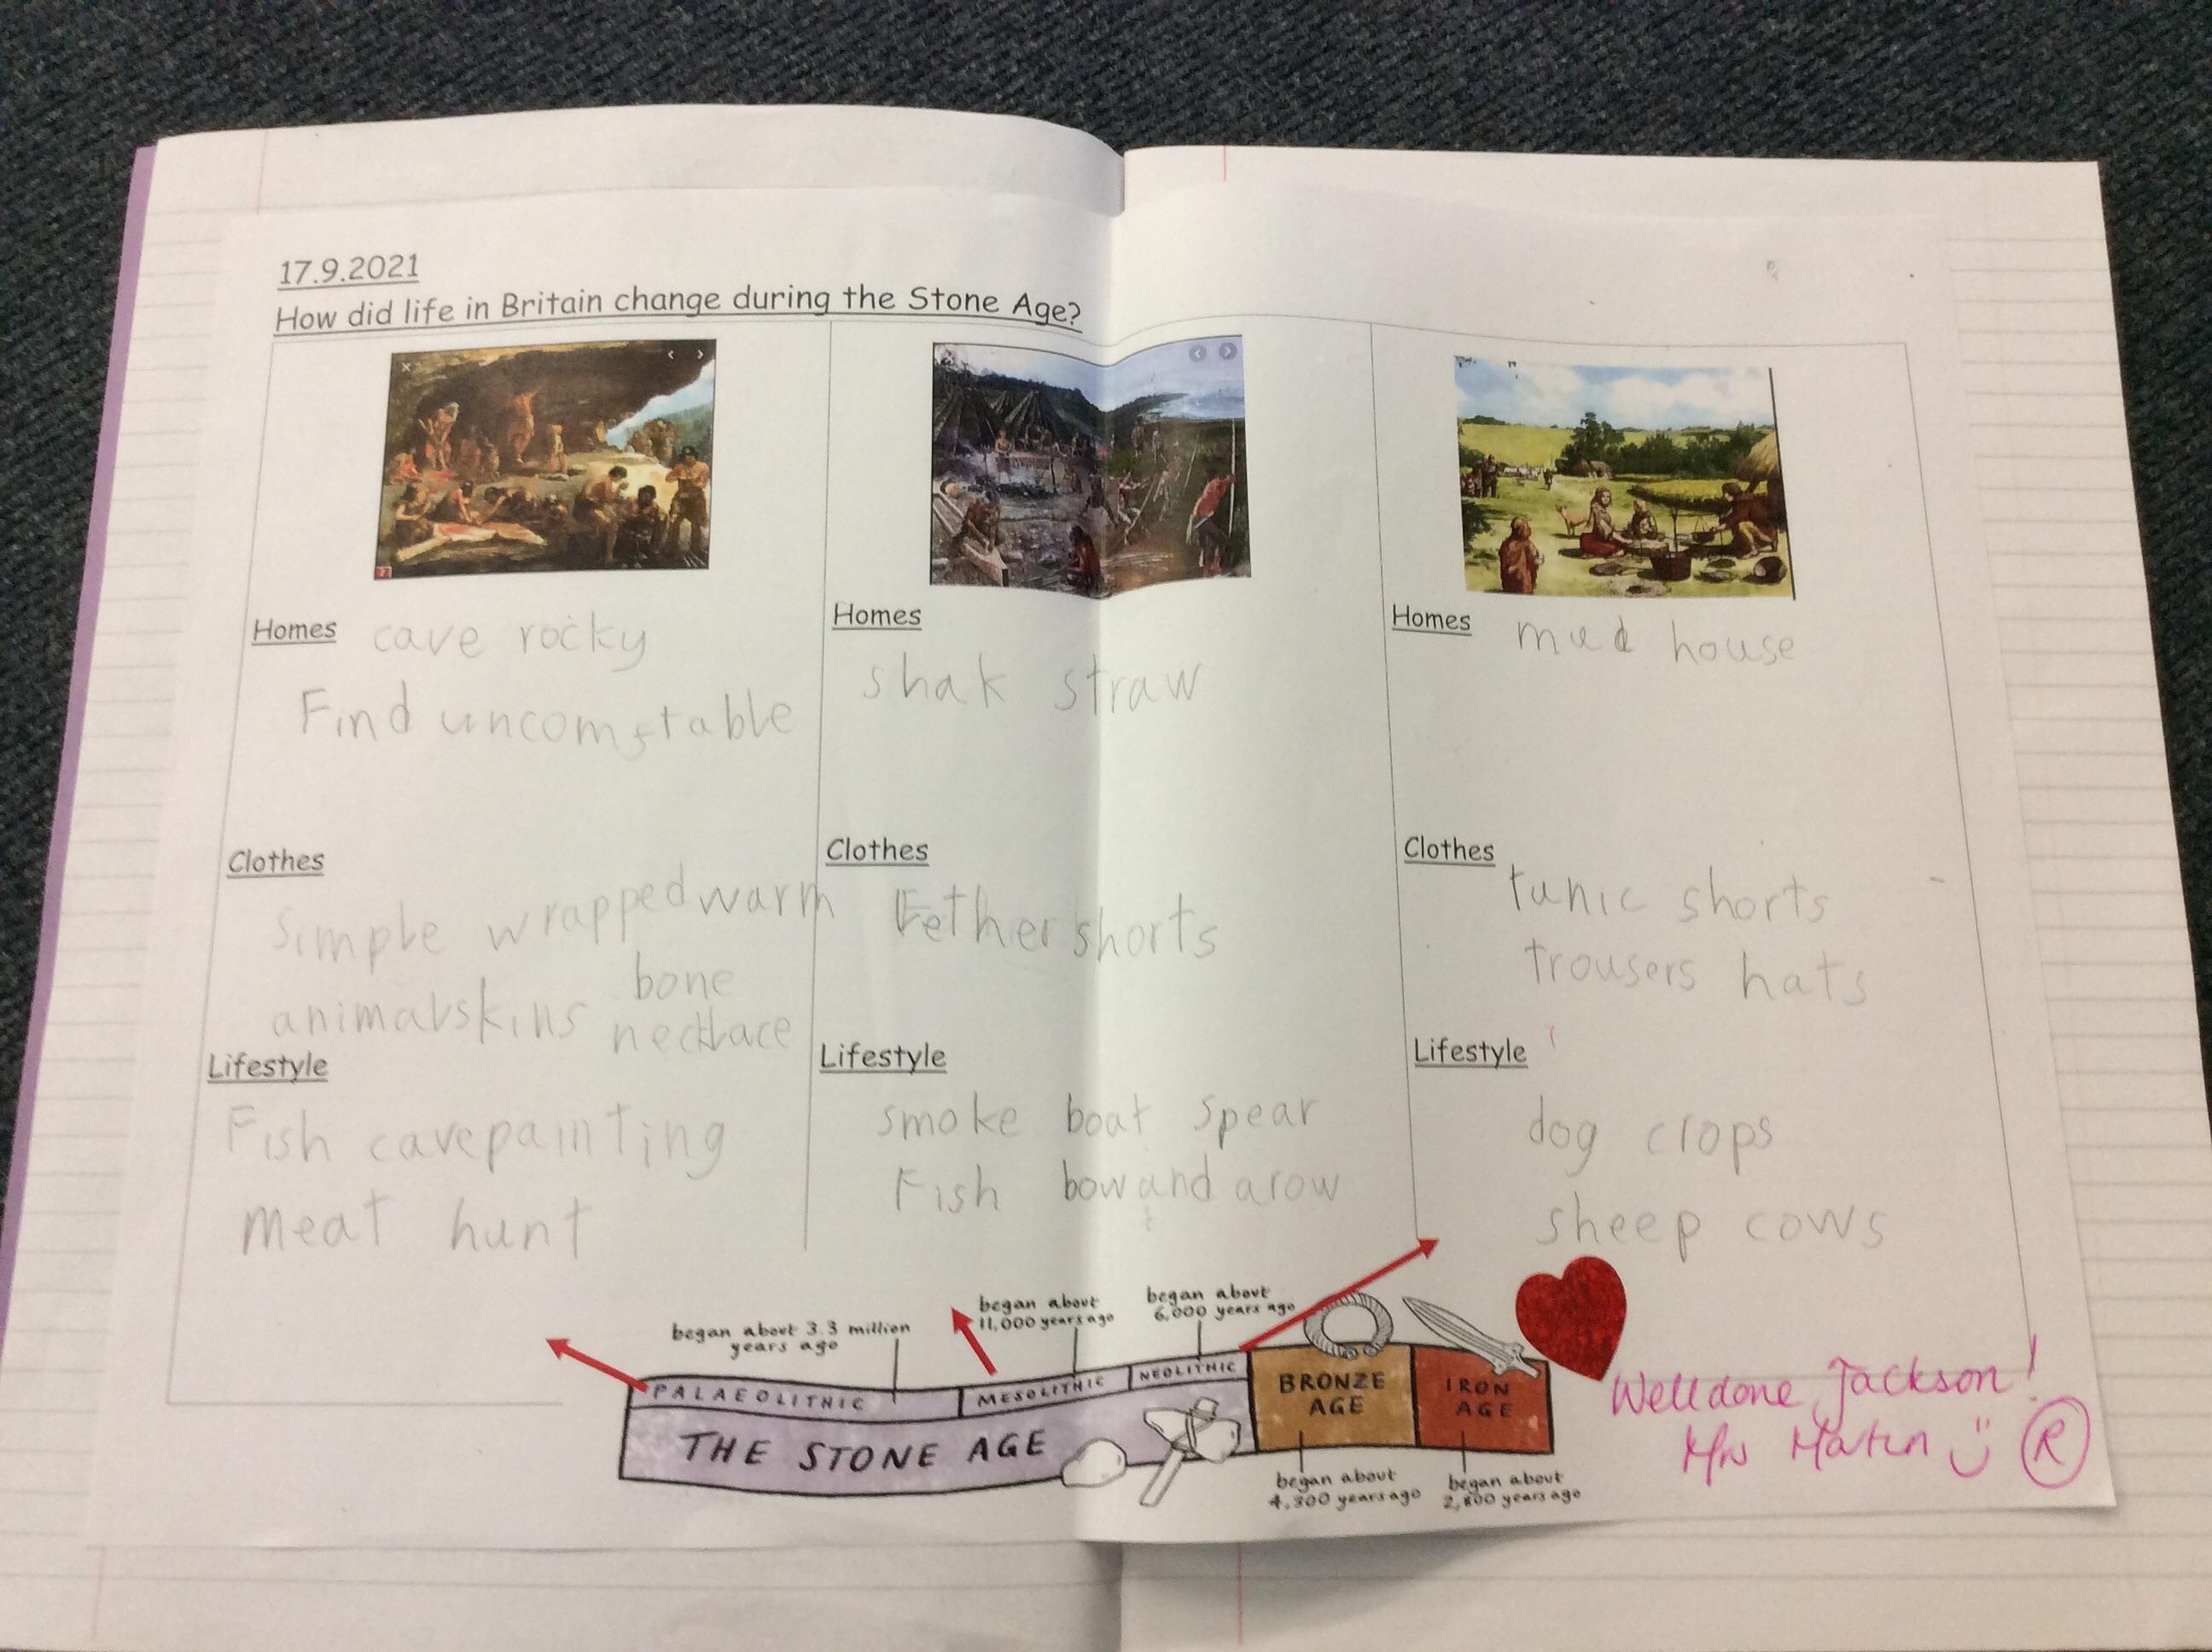 17.9.2021
How did life in Britain change during the Stone Age?
Homes cave rocky
Find uncomftable
Clothes
Simple wrapped warm
animal skins bone
necklace
Lifestyle
Fish cavepainting
meat hunt
Homes
shak straw
Clothes
Fether shorts
Lifestyle
smoke boat spear
Fish bow and arow
Homes mud house
Clothes
tunic shorts
trousers hats
Lifestyle
dog crops
sheep cows
began about 3.3 million
years ago
began about
11,000 years ago
began about
6,000 years ago
PALAEOLITHIC
MESOLITHIC
NEOLITHIC
THE STONE AGE
BRONZE
AGE
IRON
AGE
began about
4,300 years ago
began about
2,800 years ago
Well done, Jackson!
Mrs Martin
R